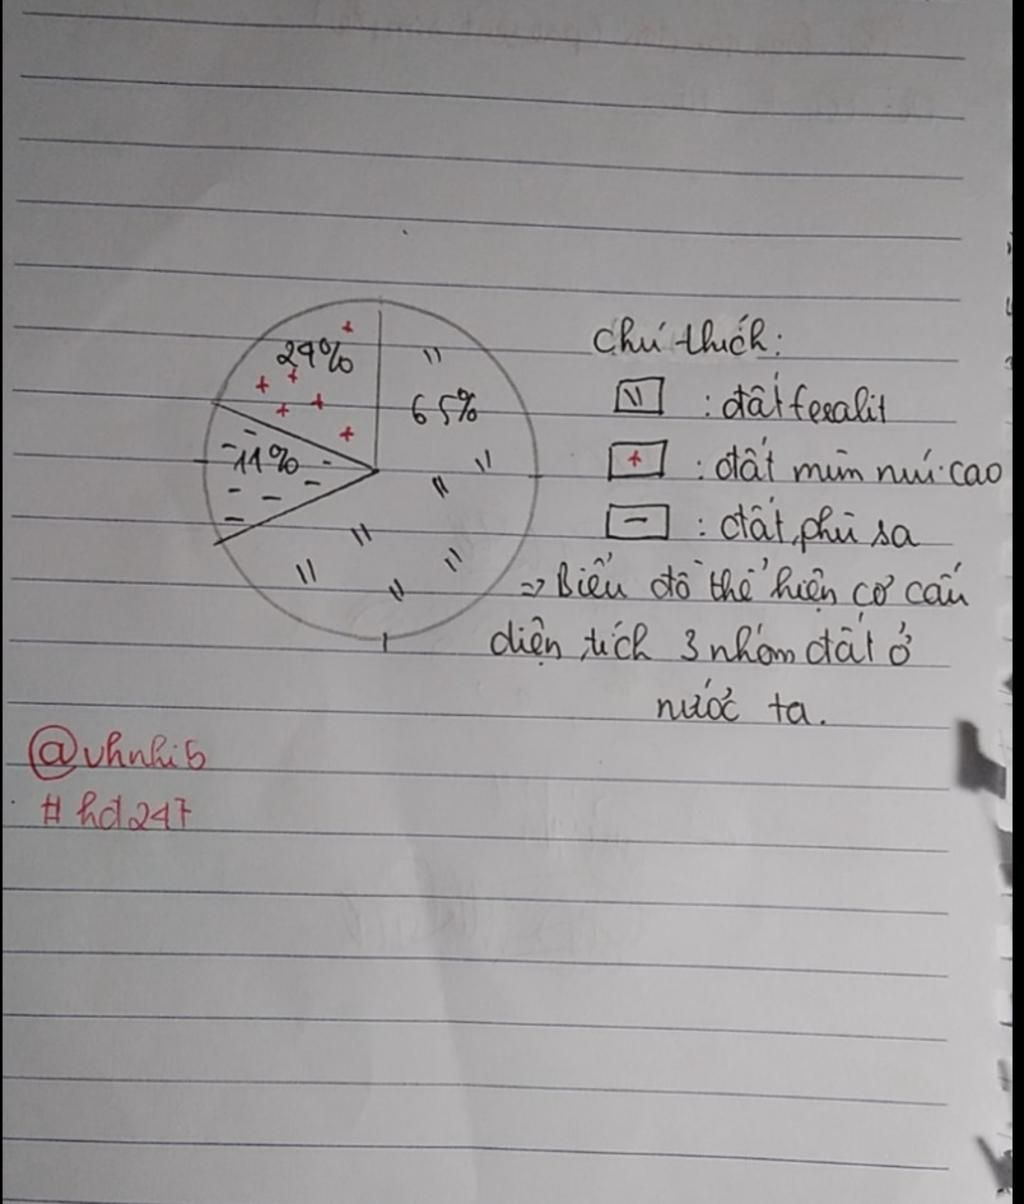 24%
65%
11%
Chú thích:
: đất feralit
: đất mùn núi cao
: đất phù sa
=> Biểu đồ thể hiện cơ cấu
diện tích 3 nhóm đất ở
nước ta.
@vhnhi5
#hd247